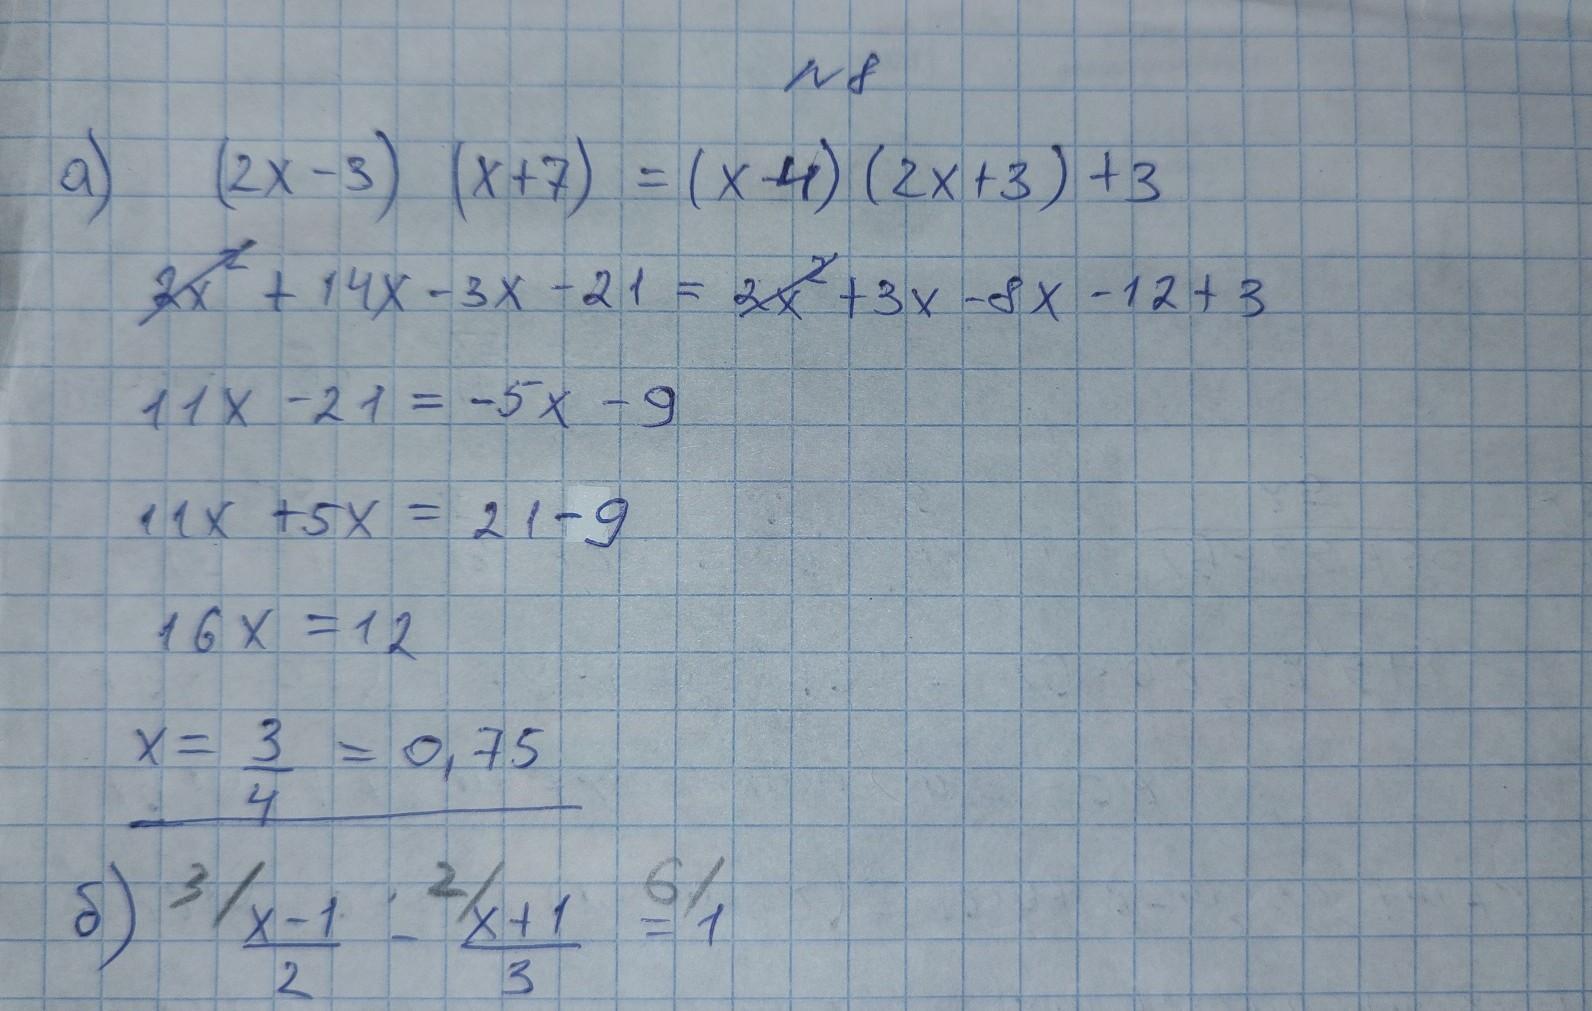 № 8
а) (2x - 3) (x + 7) = (x - 4) (2x + 3) + 3
2x² + 14x - 3x - 21 = 2x² + 3x - 8x - 12 + 3
11x - 21 = -5x - 9
11x + 5x = 21 - 9
16x = 12
x = 3/4 = 0,75
б) 3/ (x - 1)/2 - 2/ (x + 1)/3 = 6/ 1